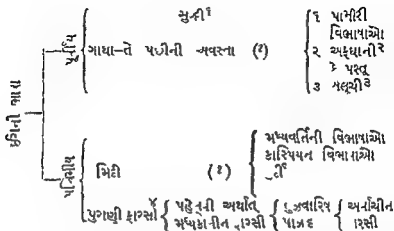 સુગ્દી¹
ઈરાની ભાષા
પૂર્વીય
ગાથા–તે પછીની અવસ્તા (?)
૧ પામીરી
વિભાષાઓ
૨ અફઘાની૨
કે પસ્તૂ
૩ બલુચી૩
પશ્ચિમીય
મિદી (?)
મધ્યવર્તિની વિભાષાઓ
કાસ્પિયન વિભાષાઓ
પુરાણી ફારસી
પહેલ્વી અર્થાત્
મધ્યકાલીન ફારસી
હુઝવારિષ
પાઝંદ
અર્વાચીન
ફારસી